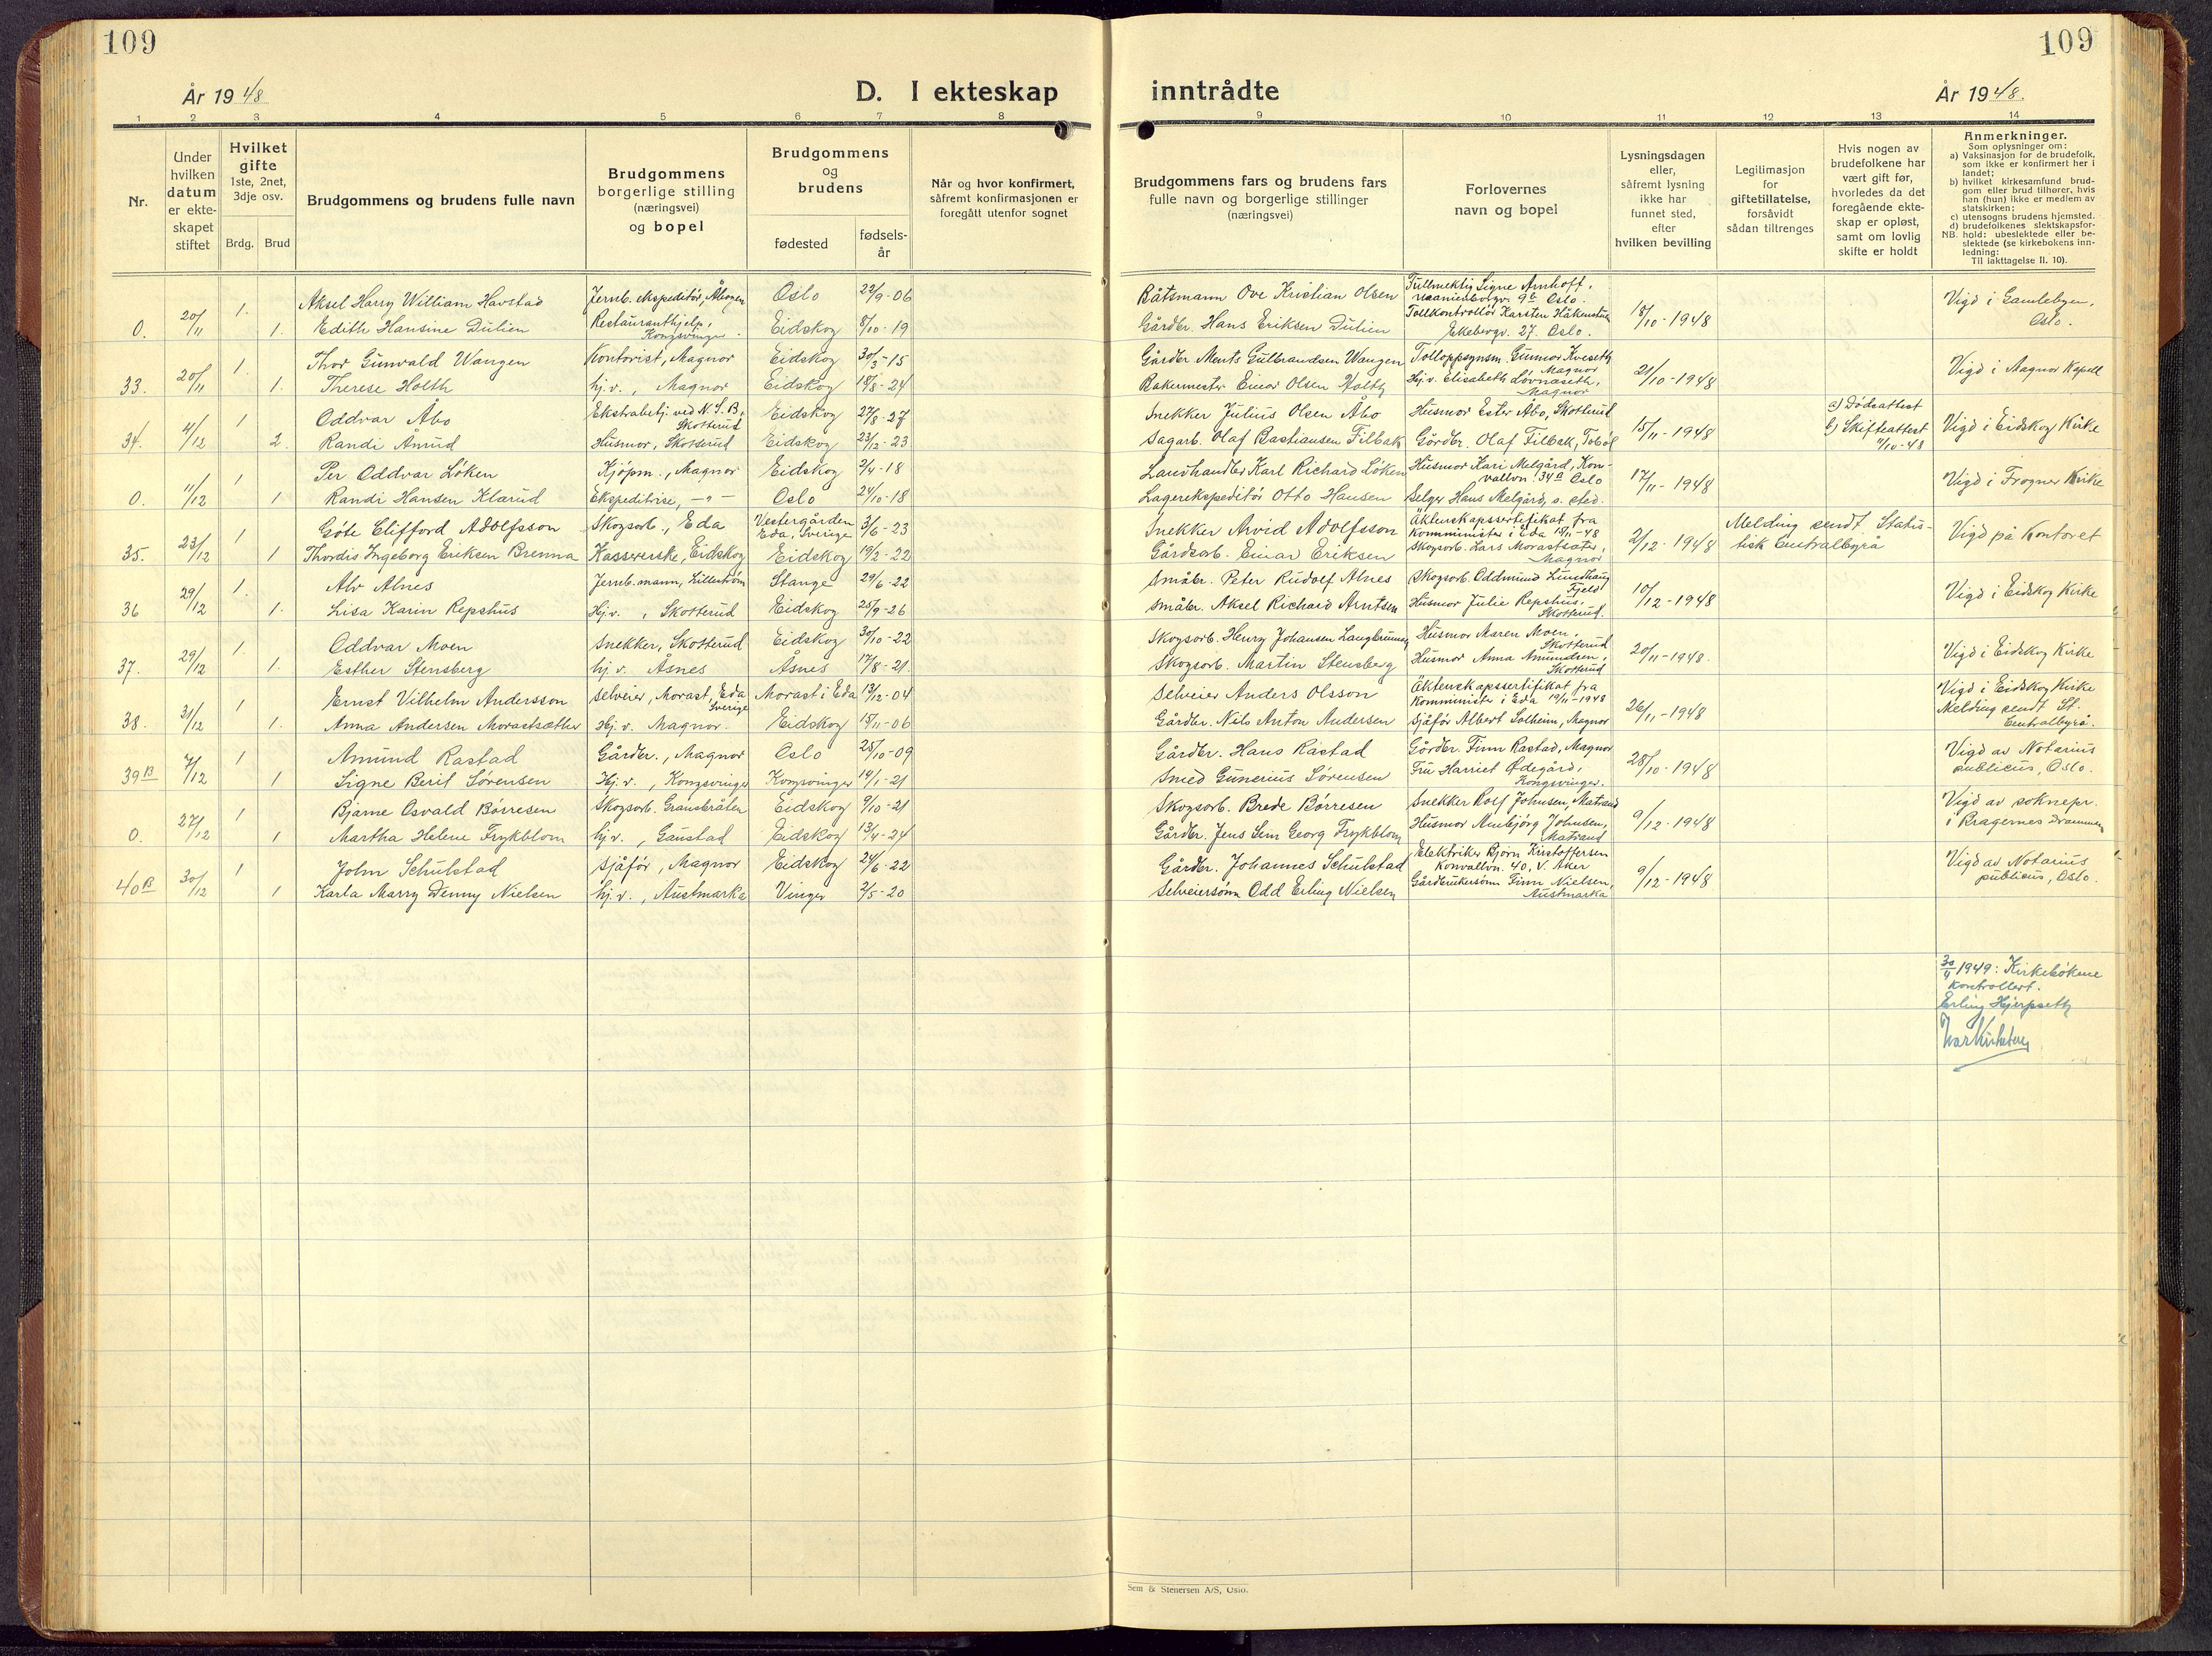 109
109
År 1948
D. I ekteskap
inntrådte
År 1948.
1 2 3 4 5 6 7 8
9 10 11 12 13 14
Nr.
Under hvilken datum er ekteskapet stiftet
Hvilket gifte
1ste, 2net, 3dje osv.
Brdg. Brud
Brudgommens og brudens fulle navn
Brudgommens borgerlige stilling (næringsvei) og bopel
Brudgommens og brudens
fødested
fødselsår
Når og hvor konfirmert, såfremt konfirmasjonen er foregått utenfor sognet
Brudgommens fars og brudens fars fulle navn og borgerlige stillinger (næringsvei)
Forlovernes navn og bopel
Lysningsdagen eller, såfremt lysning ikke har funnet sted, efter hvilken bevilling
Legitimasjon for giftetillatelse, forsåvidt sådan tiltrenges
Hvis nogen av brudefolkene har vært gift før, hvorledes da det foregående ekteskap er opløst, samt om lovlig skifte er holdt
Anmerkninger.
Som oplysninger om:
a) Vaksinasjon for de brudefolk, som ikke er konfirmert her i landet;
b) hvilket kirkesamfund brudgom eller brud tilhører, hvis han (hun) ikke er medlem av statskirken;
c) utensogns brudens hjemsted.
d) brudefolkenes slektskapsforhold: ubeslektede eller beslektede (se kirkebokens innledning:
NB.
Til iakttagelse II. 10).
0. 20/11 1. Aksel Harry William Havstad Jernb. ekspeditør, Åbogen Oslo 22/9-06 Båtsmann Ove Kristian Olsen Fullmektig Signe Arnhoff, 9b Oslo. 18/10-1948 Vigd i Gamlebyen, Oslo.
1. Edith Hansine Dulien Restauranthjelp, Kongsvinger Eidskog 8/10-19 Gårdbr. Hans Eriksen Dulien Tollkontrollør Karsten Ekebergv. 27. Oslo.
33. 20/11 1. Thor Gunvald Wangen Kontorist, Magnor Eidskog 30/3-15 Gårdbr. Ments Gulbrandsen Wangen Tolloppsynsm. Gunnar Kveseth Magnor 21/10-1948 Vigd i Magnor Kapell
1. Therese Holth hj.v., Magnor Eidskog 18/8-24 Bakermester Einar Olsen Holth Hj.v. Elisabeth Løvnaseth, Magnor
34. 4/12 1 Oddvar Åbo Ekstrabetj. ved N.S.B, Skotterud Eidskog 27/8-27 Snekker Julius Olsen Åbo Husmor Ester Åbo, Skotterud 15/11-1948 a) Dødsattest b) Skifteattest 4/10-48 Vigd i Eidskog Kirke
2. Randi Ånrud Husmor, Skotterud Eidskog 23/12-23 Sagarb. Olaf Bastiansen Filbak Gårdbr. Olaf Filbak, Tobøl
0. 11/12 1 Per Oddvar Løken Kjøpm., Magnor Eidskog 2/4-18 Landhandler Karl Richard Løken Husmor Kari Melgård, Konvallvn. 34B Oslo 17/11-1948 Vigd i Frogner Kirke
1 Randi Hansen Klarud Ekspeditrise, -"- Oslo 24/10-18 Lagerekspeditør Otto Hansen Selger Hans Melgård, s. sted.
35. 23/12 1 Gøte Clifford Adolfsson Skogsarb., Eda Vestergården Eda, Sverige 3/6-23 Snekker Arvid Adolfsson Äktenskapssertifikat fra Komminister i Eda 18/11-48 2/12-1948 Melding sendt Statistisk Centralbyrå Vigd på Kontoret
1 Thordis Ingeborg Eriksen Brenna Kassererske, Eidskog Eidskog 19/2-22 Gårdsarb. Einar Eriksen Skogsarb. Lars Morastsæter, Magnor
36 29/12 1. Alv Alnes Jernb.mann, Lillestrøm Stange 29/6-22 Småbr. Peter Rudolf Alnes Skogsarb. Oddmund Lundhaug Fjeld 10/12-1948 Vigd i Eidskog Kirke
1. Lisa Karin Repshus Hj.v., Skotterud Eidskog 25/9-26 Småbr. Aksel Richard Arntsen Husmor Julie Repshus, Skotterud.
37. 29/12 1. Oddvar Moen Snekker, Skotterud Eidskog 30/10-22 Skogsarb. Henry Johansen Husmor Maren Moen, Skotterud 20/11-1948. Vigd i Eidskog Kirke
1. Esther Stensberg hj.v. Åsnes Åsnes 17/8-21. Skogsarb. Martin Stensberg Husmor Anna Amundsen, Skotterud
38. 31/12 1 Ernst Vilhelm Andersson Selveier, Morast, Eda Sverige Morast i Eda 13/12-04 Selveier Anders Olsson Äktenskapssertifikat fra Komminister i Eda 19/11-1948 26/11-1948 Vigd i Eidskog Kirke Melding sendt St. Centralbyrå.
1. Anna Andersen Morastsæther Hj.v. Magnor. Eidskog 15/11-06 Gårdbr. Nils Anton Andersen Sjåfør Albert Solheim, Magnor
39B 7/12 1 Amund Rastad Gårdbr., Magnor Oslo 25/10-09 Gårdbr. Hans Rastad Gårdbr. Finn Rastad, Magnor 28/10-1948 Vigd av Notarius publicus, Oslo.
1 Signe Berit Sørensen Hj.v., Kongsvinger Kongsvinger 19/1-21 Smed Gunerius Sørensen Fru Harriet Ødegård, Kongsvinger.
0. 27/12 1 Bjarne Osvald Børresen Skogsarb. Gransbråten Eidskog 9/10-21 Skogsarb. Brede Børresen Snekker Rolf Johnsen, Matrand 9/12-1948 Vigd av soknepr. i Bragernes Drammen
1 Martha Helene Frykblom hj.v., Gaustad Eidskog 13/4-24 Gårdbr. Jens Sem Georg Frykblom Husmor Johnsen, Matrand
40B 30/12 1 John Schulstad Sjåfør, Magnor Eidskog 24/6-22 Gårdbr. Johannes Schulstad Elektriker Bjørn Kirstoffersen Konvallvn. 40, V. Aker 9/12-1948 Vigd av Notarius publicus, Oslo.
1 Karla Marry Denny Nielsen hj.v., Austmarka Vinger 2/5-20 Selveiersønn Odd Erling Nielsen Gårdbrukersønn Finn Nielsen, Austmarka
30/4 1949: Kirkebøkene
kontrollert.
Erling Hjerpseth
Sem & Stenersen A/S, Oslo.